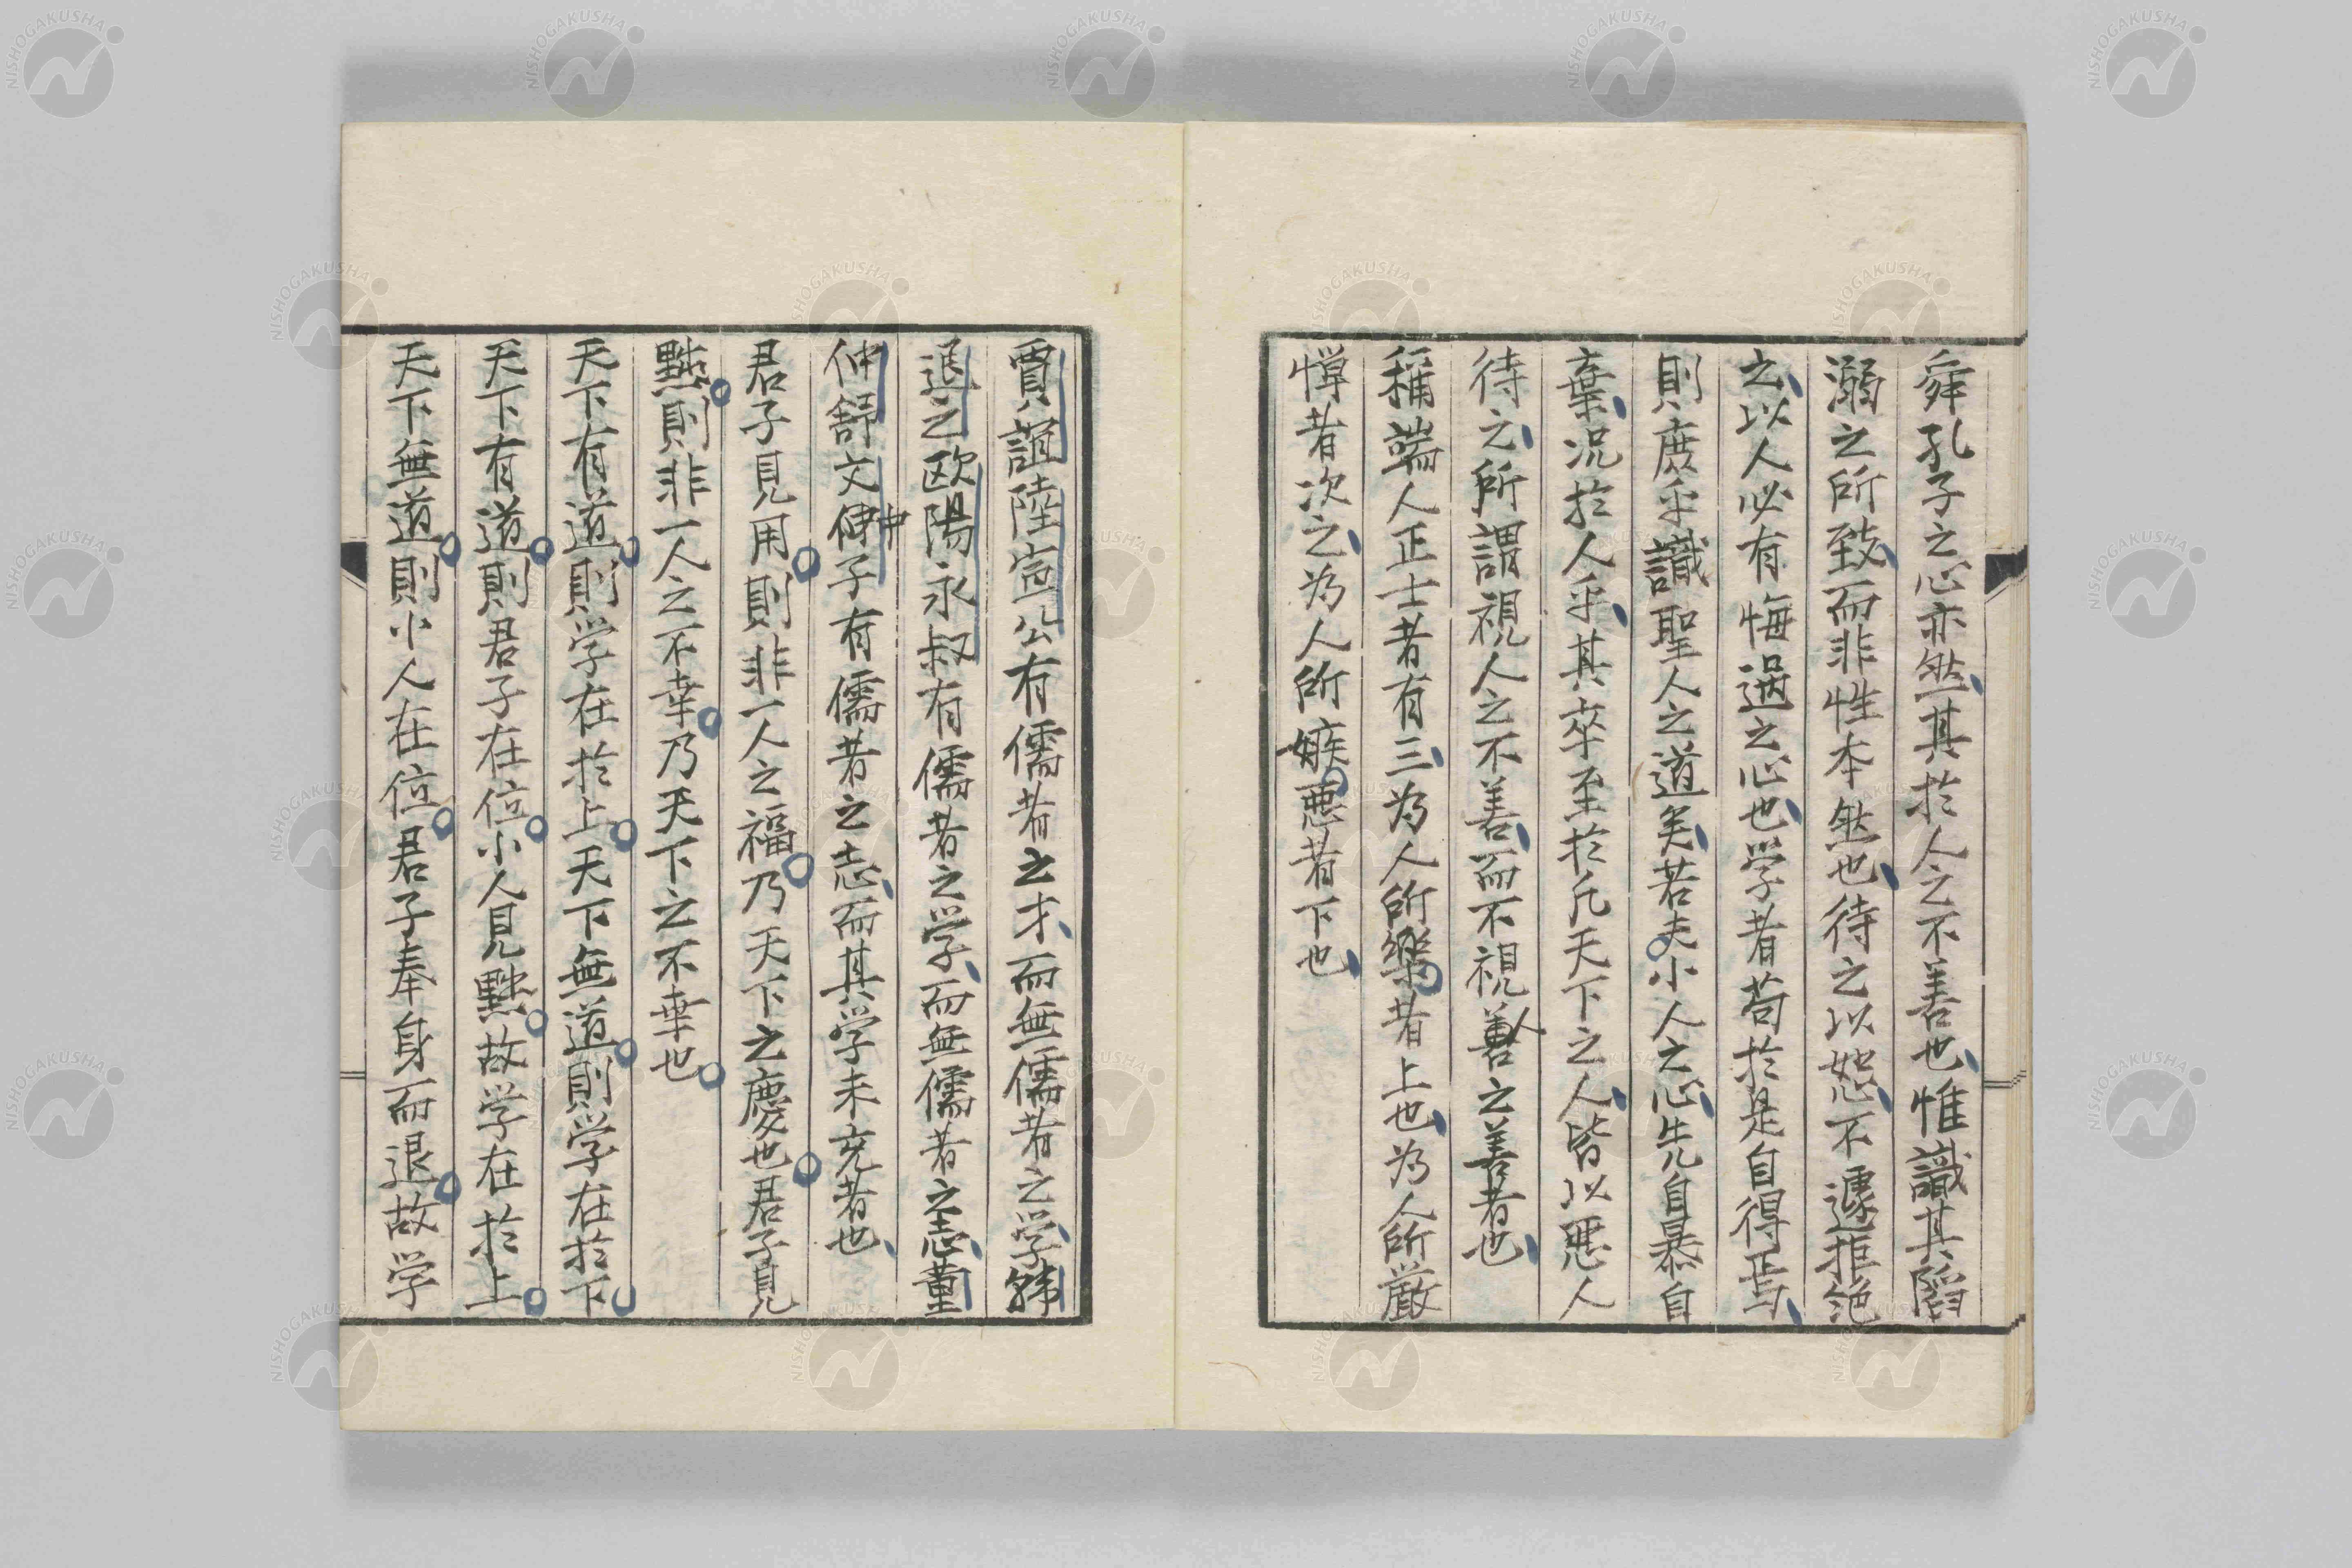 舜孔子之心亦然其於人之不善也惟識其陷
溺之所致而非性本然也待之以恕不遽拒絶
之以人必有悔過之心也学者苟於是自得焉
則庶乎識聖人之道矣若夫小人之心先自暴自
棄況於人乎其卒至於凡天下之人皆以悪人
待之所謂視人之不善而不視人之善者也
稱端人正士者有三為人所樂者上也為人所厳
憚者次之為人所嫉悪者下也
賈誼陸宣公有儒者之才而無儒者之学韓
退之欧陽永叔有儒者之学而無儒者之志董
仲舒文仲子有儒者之志而其学未充者也
中
君子見用則非一人之福乃天下之慶也君子見
黜則非一人之不幸乃天下之不幸也
天下有道則学在於上天下無道則学在於下
天下有道則君子在位小人見黜故学在於上
天下無道則小人在位君子奉身而退故学
NISHOGAKUSHA